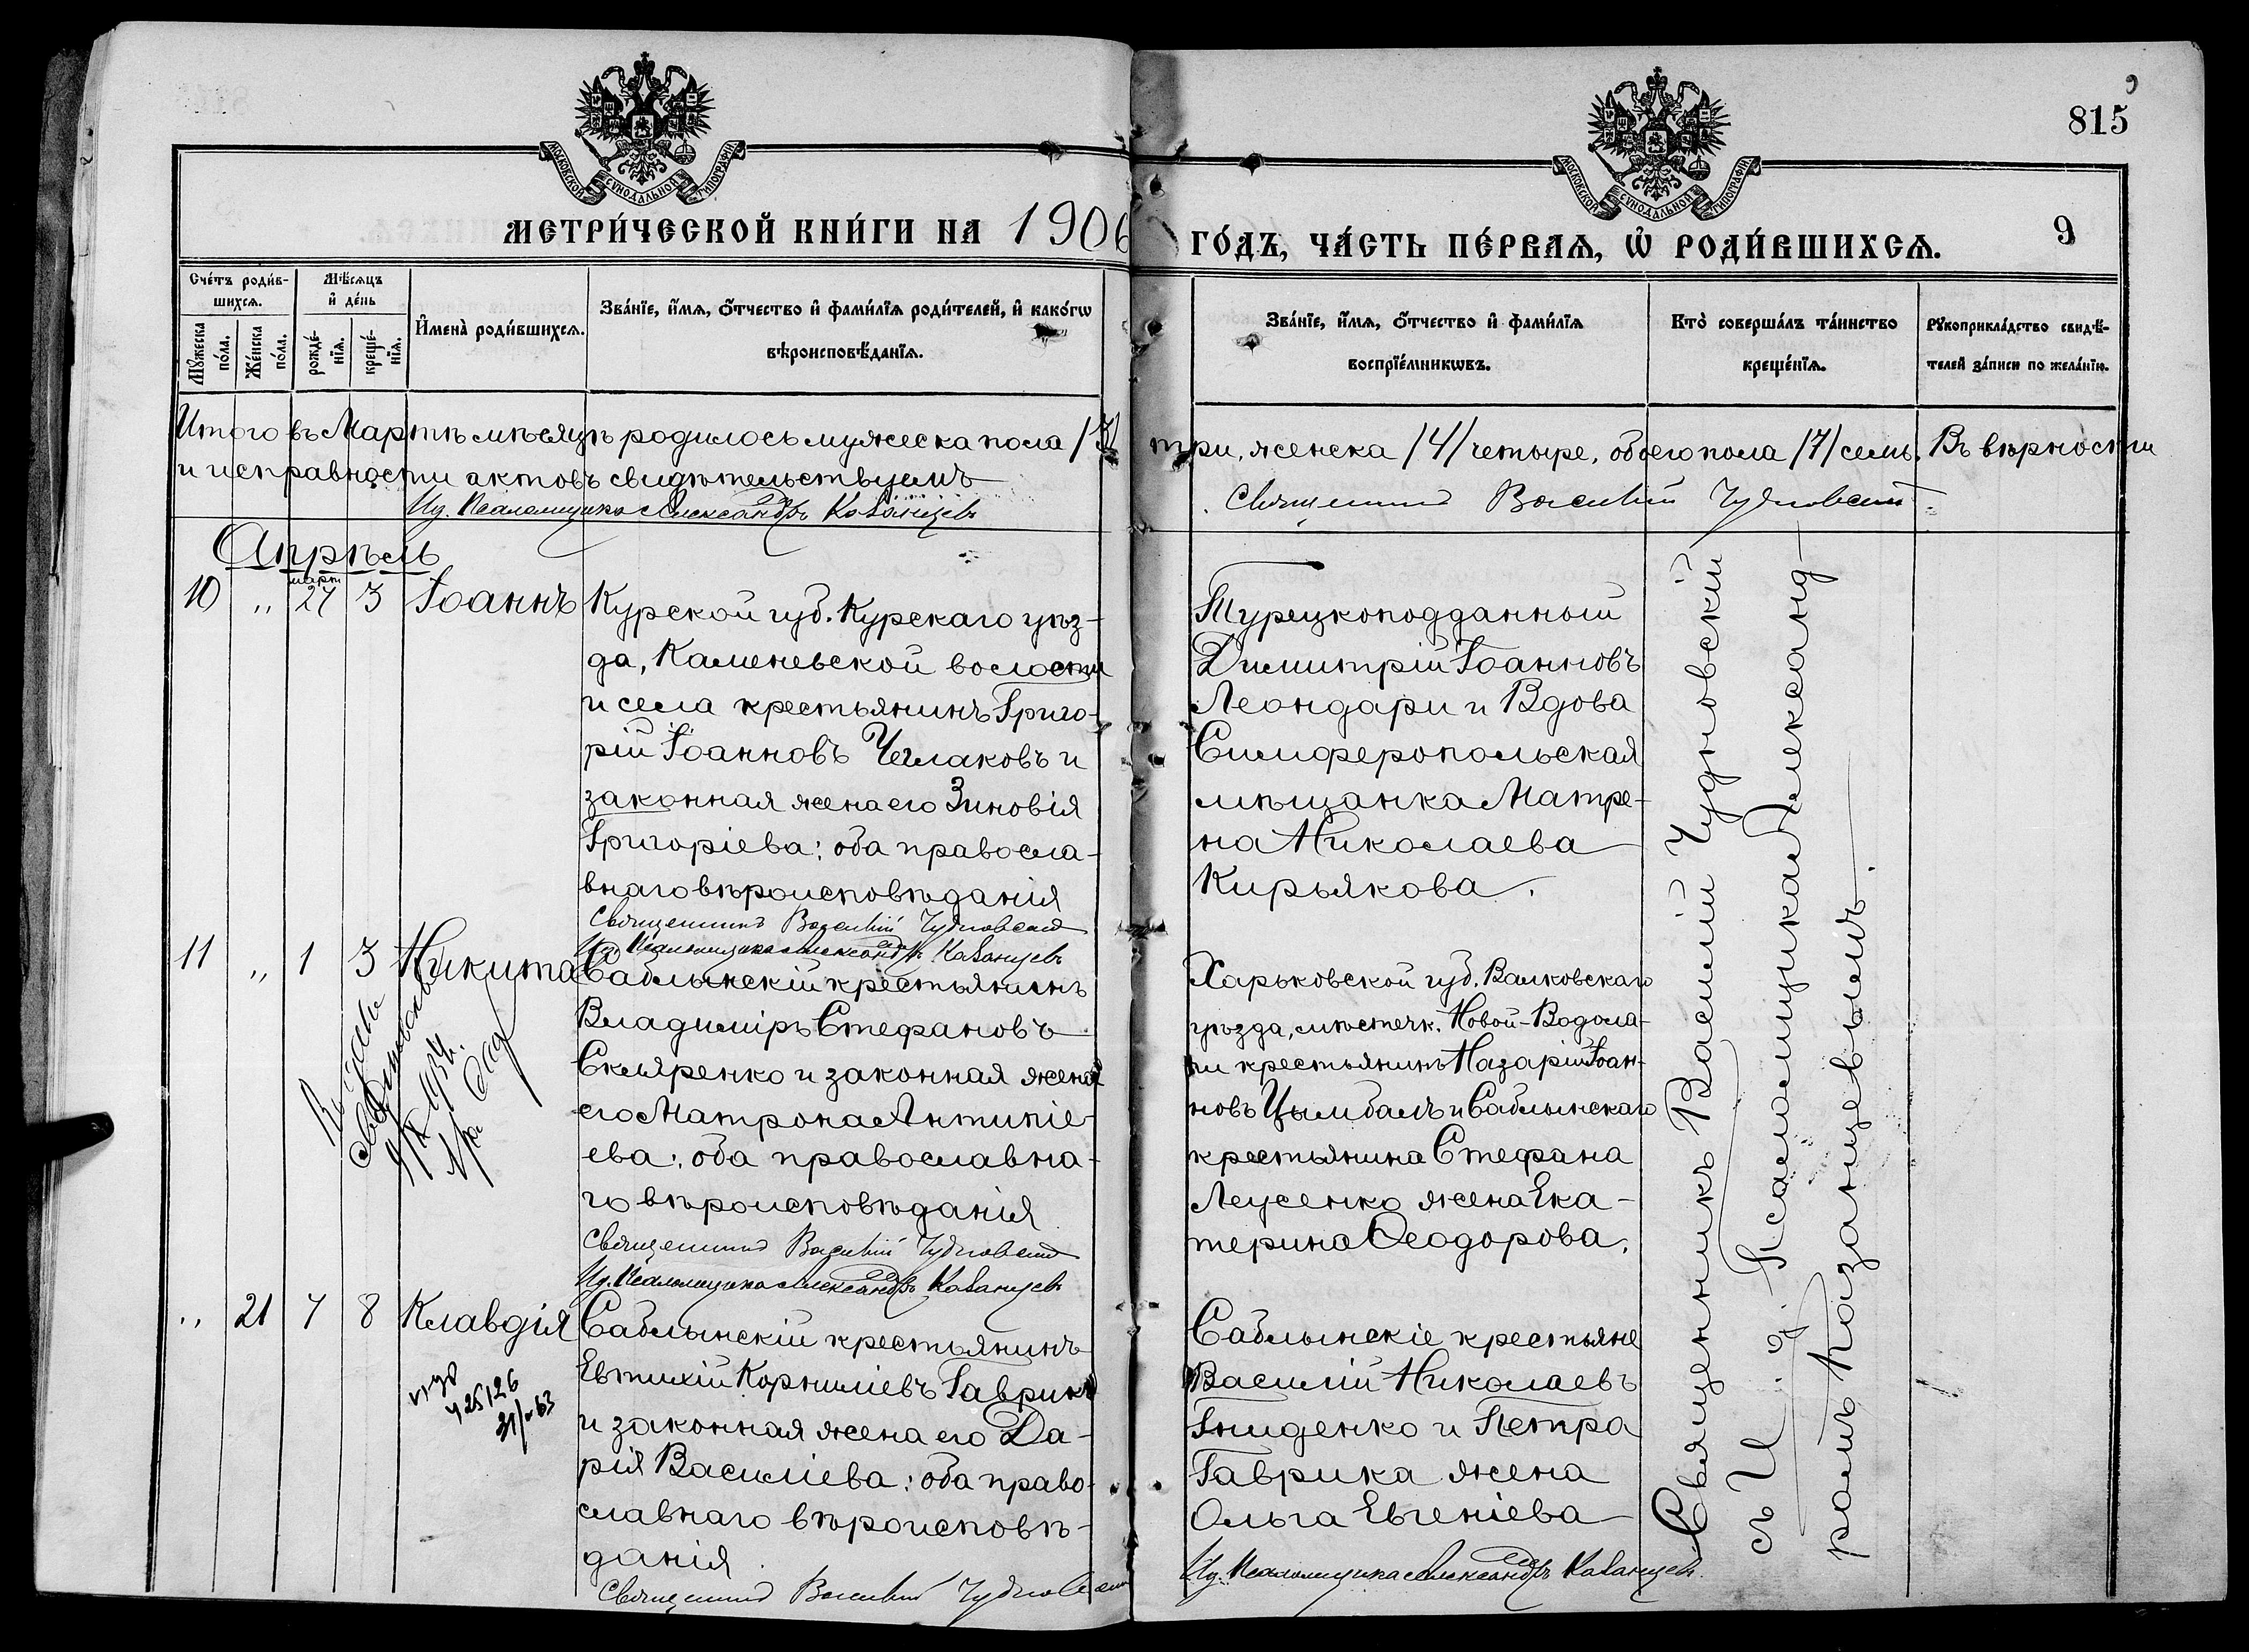 815
9
МОСКОВСКОЙ СѴНОДАЛЬНОЙ ТИПОГРАФІИ
МОСКОВСКОЙ СѴНОДАЛЬНОЙ ТИПОГРАФІИ
МЕТРИ́ЧЕСКОЙ КНИ́ГИ НА 1906
ГО́ДЪ, ЧА́СТЬ ПЕ́РВАѦ, Ѡ҆ РОДИ́ВШИХСѦ.
9
Сче́тъ роди́в-
шихсѧ.
Мѣ́сѧцъ
и҆ де́нь
Мꙋ́жеска
по́ла.
Же́нска
по́ла.
рожде́-
нїѧ.
креще́-
нїѧ.
И҆мена̀ роди́вшихсѧ.
Зва́нїе, и҆́мѧ, ѻ҆́тчество и҆ фами́лїѧ роди́телей, и҆ како́гѡ
вѣроисповѣ́данїѧ.
Зва́нїе, и҆́мѧ, ѻ҆́тчество и҆ фами́лїѧ
воспрїе́мникѡвъ.
Кто̀ соверша́лъ та́инство
креще́нїѧ.
Рꙋкоприкла́дство свидѣ́-
телей за́писи по жела́нїю.
Итого въ Мартѣ мѣсяцѣ родилось мужеска пола /3/ три, женска /4/ четыре, обоего пола /7/ семь. Въ вѣрности
и исправности актовъ свидѣтельствуемъ
Священникъ Василій Чудновскій
И. д. Псаломщика Александръ Казанцевъ
Апрѣль
10 " март 27 3 Іоаннъ
Курской губ. Курскаго уѣз-
да, Каменевской волости
и села крестьянинъ Григо-
рій Іоанновъ Чеглаковъ и
законная жена его Зиновія
Григоріева; оба правосла-
внаго вѣроисповѣданія
Священникъ Василій Чудновскій
И. д. Псаломщика Александръ Казанцевъ
Турецкоподданный
Димитрій Іоанновъ
Леондари и Вдова
Симферопольская
мѣщанка Матре-
на Николаева
Кирьякова.
Священникъ Василій Чудновскій
съ И. д. Псаломщика Александ-
ромъ Казанцевымъ.
11 " 1 3 Никита
Саблынскій крестьянинъ
Владиміръ Стефановъ
Скляренко и законная жена
его Матрона Антипіе-
ева; оба православна-
го вѣроисповѣданія
Священникъ Василій Чудновскій
И. д. Псаломщика Александръ Казанцевъ
Харьковской губ. Валковскаго
уѣзда, мѣстечк. Новой-Водола-
ги крестьянинъ Назарій Іоан-
новъ Цымбалъ и Саблынскаго
крестьянина Стефана
Леусенко жена Ека-
терина Ѳеодорова.
1934
" 21 7 8 Клавдія
425126
63
Саблынскій крестьянинъ
Евтихій Корниліевъ Гаврикъ
и законная жена его Да-
рія Василіева; оба право-
славнаго вѣроисповѣ-
данія
Священникъ Василій Чудновскій
Саблынскіе крестьяне
Василій Николаевъ
Гниденко и Петра
Гаврика жена
Ольга Евгеніева
И. д. Псаломщика Александръ Казанцевъ.